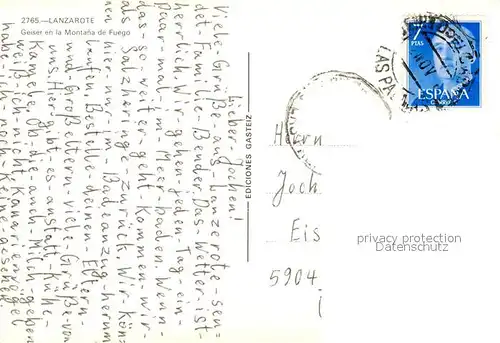 2765.—LANZAROTE
Geiser en la Montaña de Fuego
Lieber Jochen!
Viele Grüße aus Lanzarote sen-
det Familie Bender. Das Wetter ist
herrlich. Wir gehen jeden Tag ein
paar mal im Meer baden. Wenn
das so weiter geht kommen wir
als Salzheringe zurück. Wir kön-
nen hier nur im Badeanzug herum
laufen. Bestelle deinen Eltern
und Großeltern viele Grüße von
uns. Hier gibt es anstatt Kühe
Kamele. Ob die auch Milch geben
weiß ich nicht. Kanarienvögel
habe ich noch keine gesehen.
EDICIONES GASTEIZ
7
PTAS
ESPAÑA
CORREOS
LAS PA
NOV
Herrn
Joch
Eis
5904
privacy protection
Datenschutz